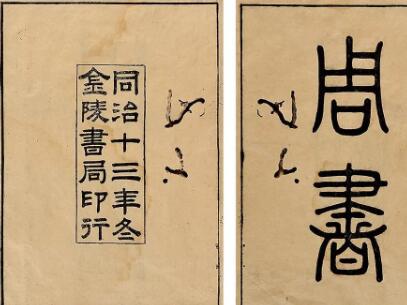 周書
同治十三年冬
金陵書局印行